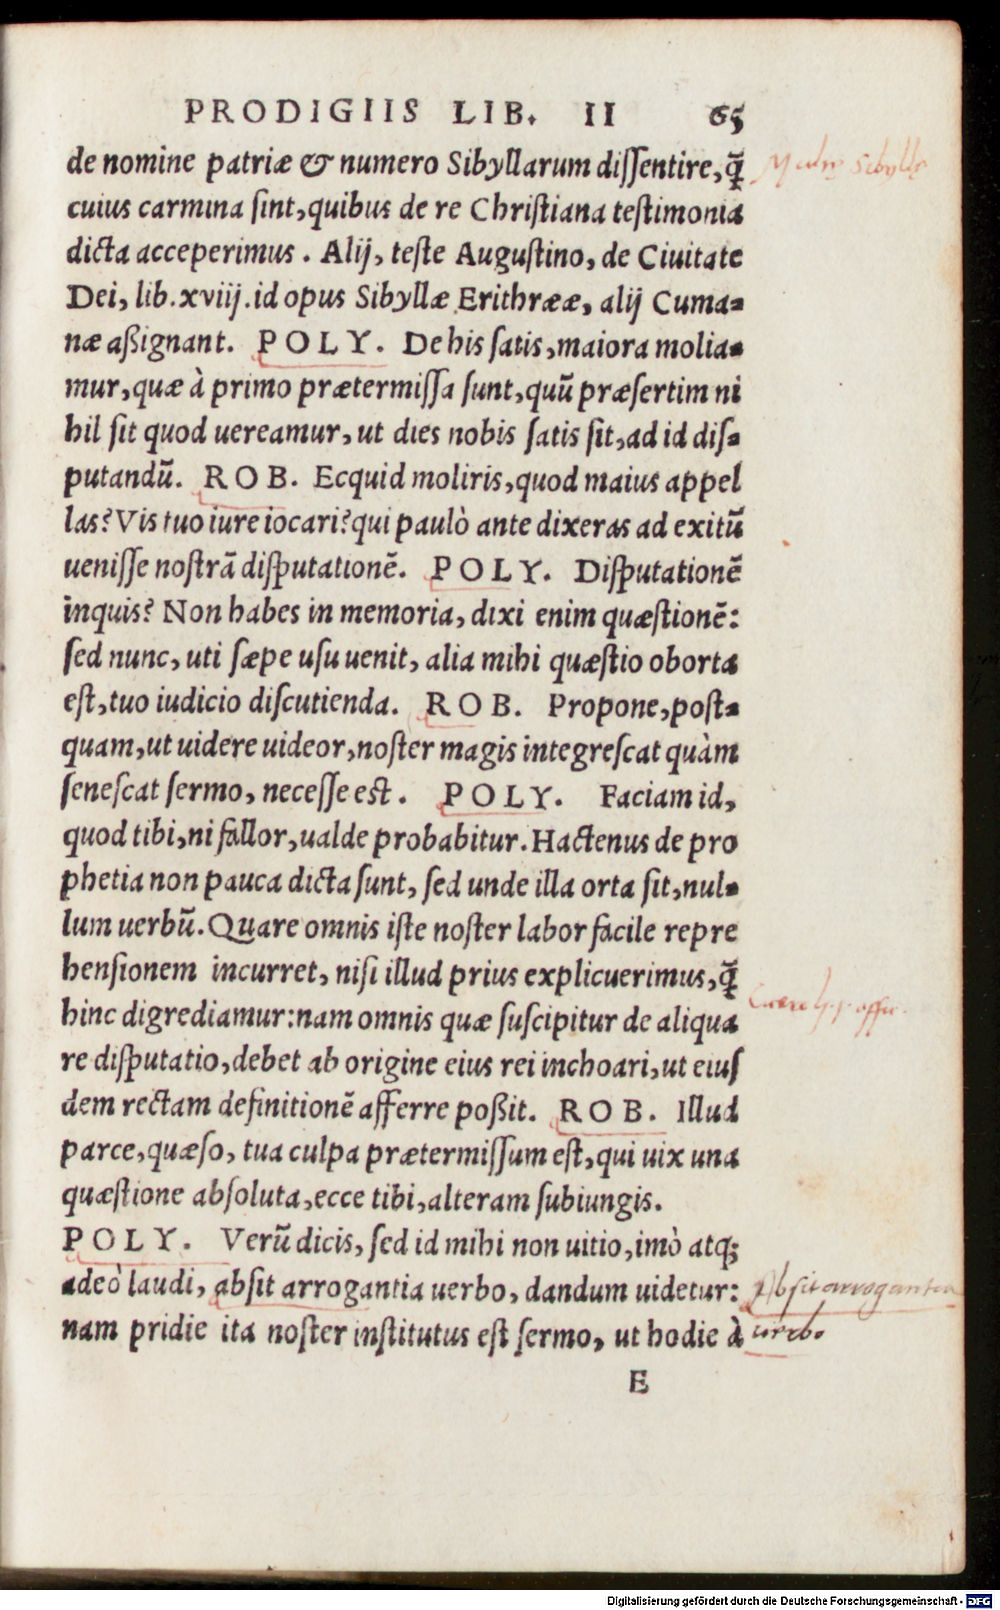 PRODIGIIS LIB. II 65
de nomine patriæ & numero Sibyllarum dissentire, q̃
cuius carmina sint, quibus de re Christiana testimonia
dicta acceperimus. Alij, teste Augustino, de Ciuitate
Dei, lib. xviij. id opus Sibyllæ Erithrææ, alij Cuma-
næ aßignant. POLY. De his satis, maiora molia-
mur, quæ à primo prætermissa sunt, quũ præsertim ni
hil sit quod uereamur, ut dies nobis satis sit, ad id dis-
putandũ. ROB. Ecquid moliris, quod maius appel
las? Vis tuo iure iocari? qui paulò ante dixeras ad exitũ
uenisse nostrã disputationẽ. POLY. Disputationẽ
inquis? Non habes in memoria, dixi enim quæstionẽ:
sed nunc, uti sæpe usu uenit, alia mihi quæstio oborta
est, tuo iudicio discutienda. ROB. Propone, post-
quam, ut uidere uideor, noster magis integrescat quàm
senescat sermo, necesse est. POLY. Faciam id,
quod tibi, ni fallor, ualde probabitur. Hactenus de pro
phetia non pauca dicta sunt, sed unde illa orta sit, nul-
lum uerbũ. Quare omnis iste noster labor facile repre
hensionem incurret, nisi illud prius explicuerimus, q̃
hinc digrediamur: nam omnis quæ suscipitur de aliqua
re disputatio, debet ab origine eius rei inchoari, ut eius
dem rectam definitionẽ afferre poßit. ROB. Illud
parce, quæso, tua culpa prætermissum est, qui uix una
quæstione absoluta, ecce tibi, alteram subiungis.
POLY. Verũ dicis, sed id mihi non uitio, imò atq;
adeò laudi, absit arrogantia uerbo, dandum uidetur:
nam pridie ita noster institutus est sermo, ut hodie à
E
Absit arrogantia
uerbo
Digitalisierung gefördert durch die Deutsche Forschungsgemeinschaft - DFG